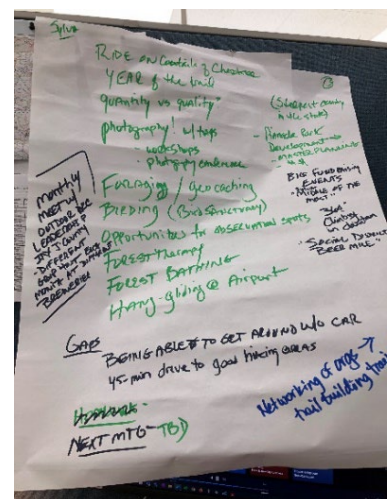 Sylva
RIDE ON Coattails of Christmas
YEAR of the trail
quantity vs quality
photography! w/ tops
- workshops
- photography conference
Foraging / geocaching
BIRDING (Bird Sanctuary)
Opportunities for observation spots
FOREST therapy
FOREST BATHING
HANG-gliding @ Airport
monthly
MEET W/
OUTDOOR REC
LEADERSHIP
IN COUNTY
- DIFFERENT
GROUP HOST EACH
MONTH AT DIFFERENT
BREWERIES
- Pinnacle Park
Development
- MASTER PLANNING
BIKE FUND RAISING
EVENTS
- "MIDDLE OF THE
in downtown
- "SOCIAL DISTRICT
BEER MILE"
GAPS
BEING ABLE TO GET AROUND W/O CAR
45-min drive to good hiking AREAS
NEXT MTG - TBD
Networking of orgs →
trail building trail